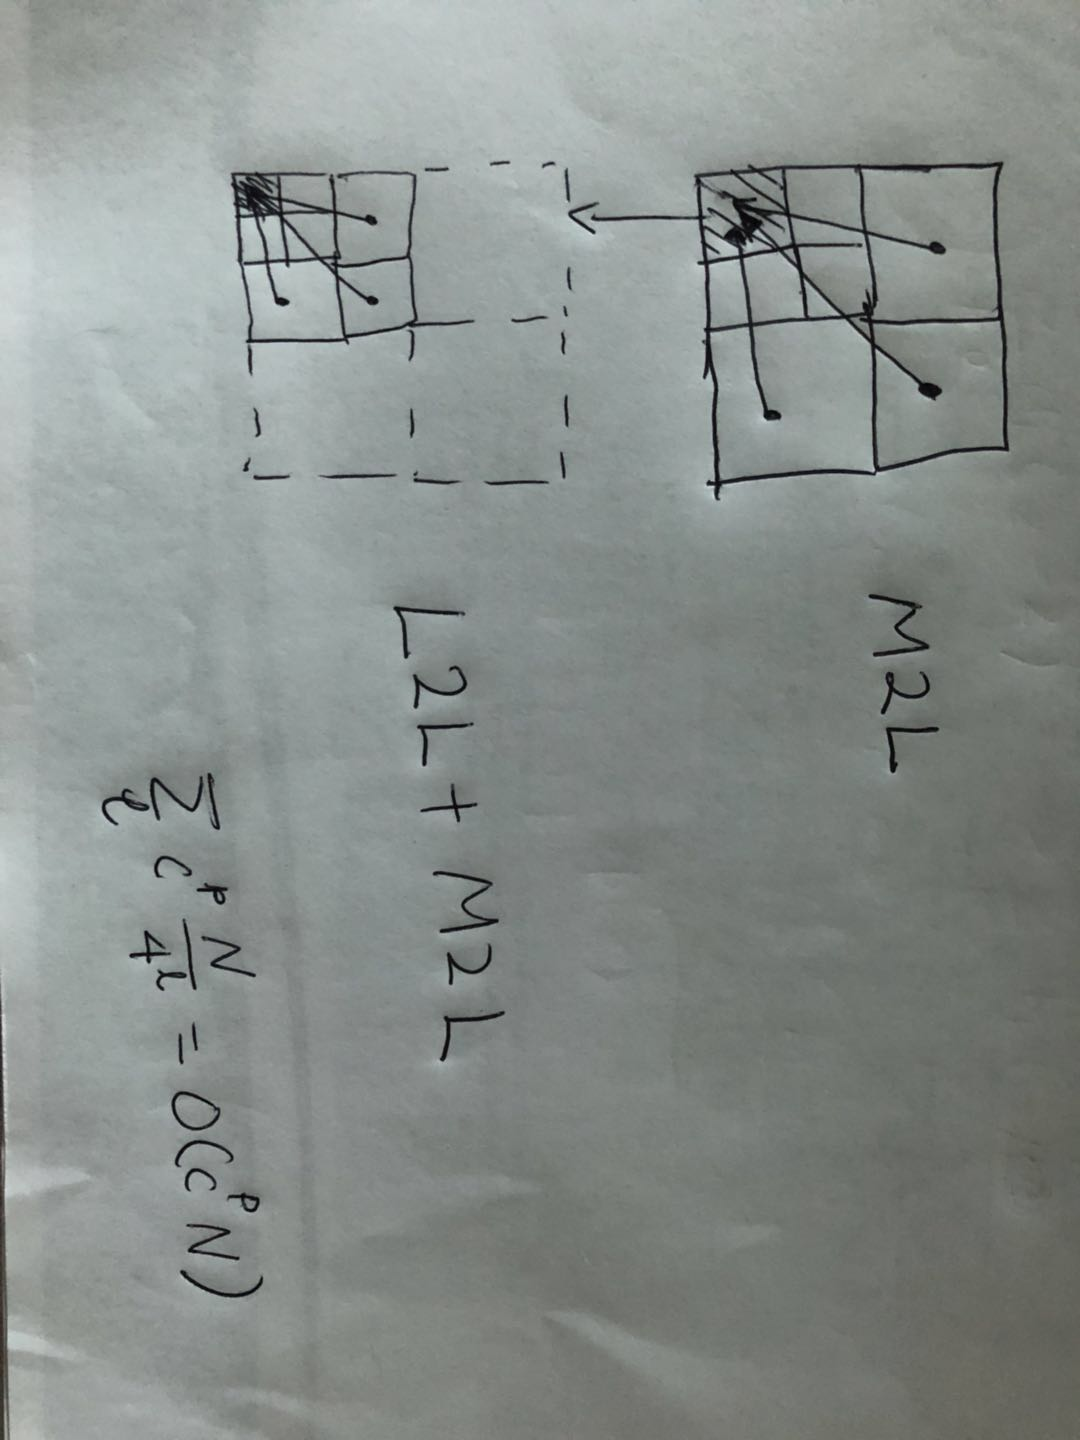 M2L
L2L + M2L
∑_ℓ c^p N/4^ℓ = O(c^p N)